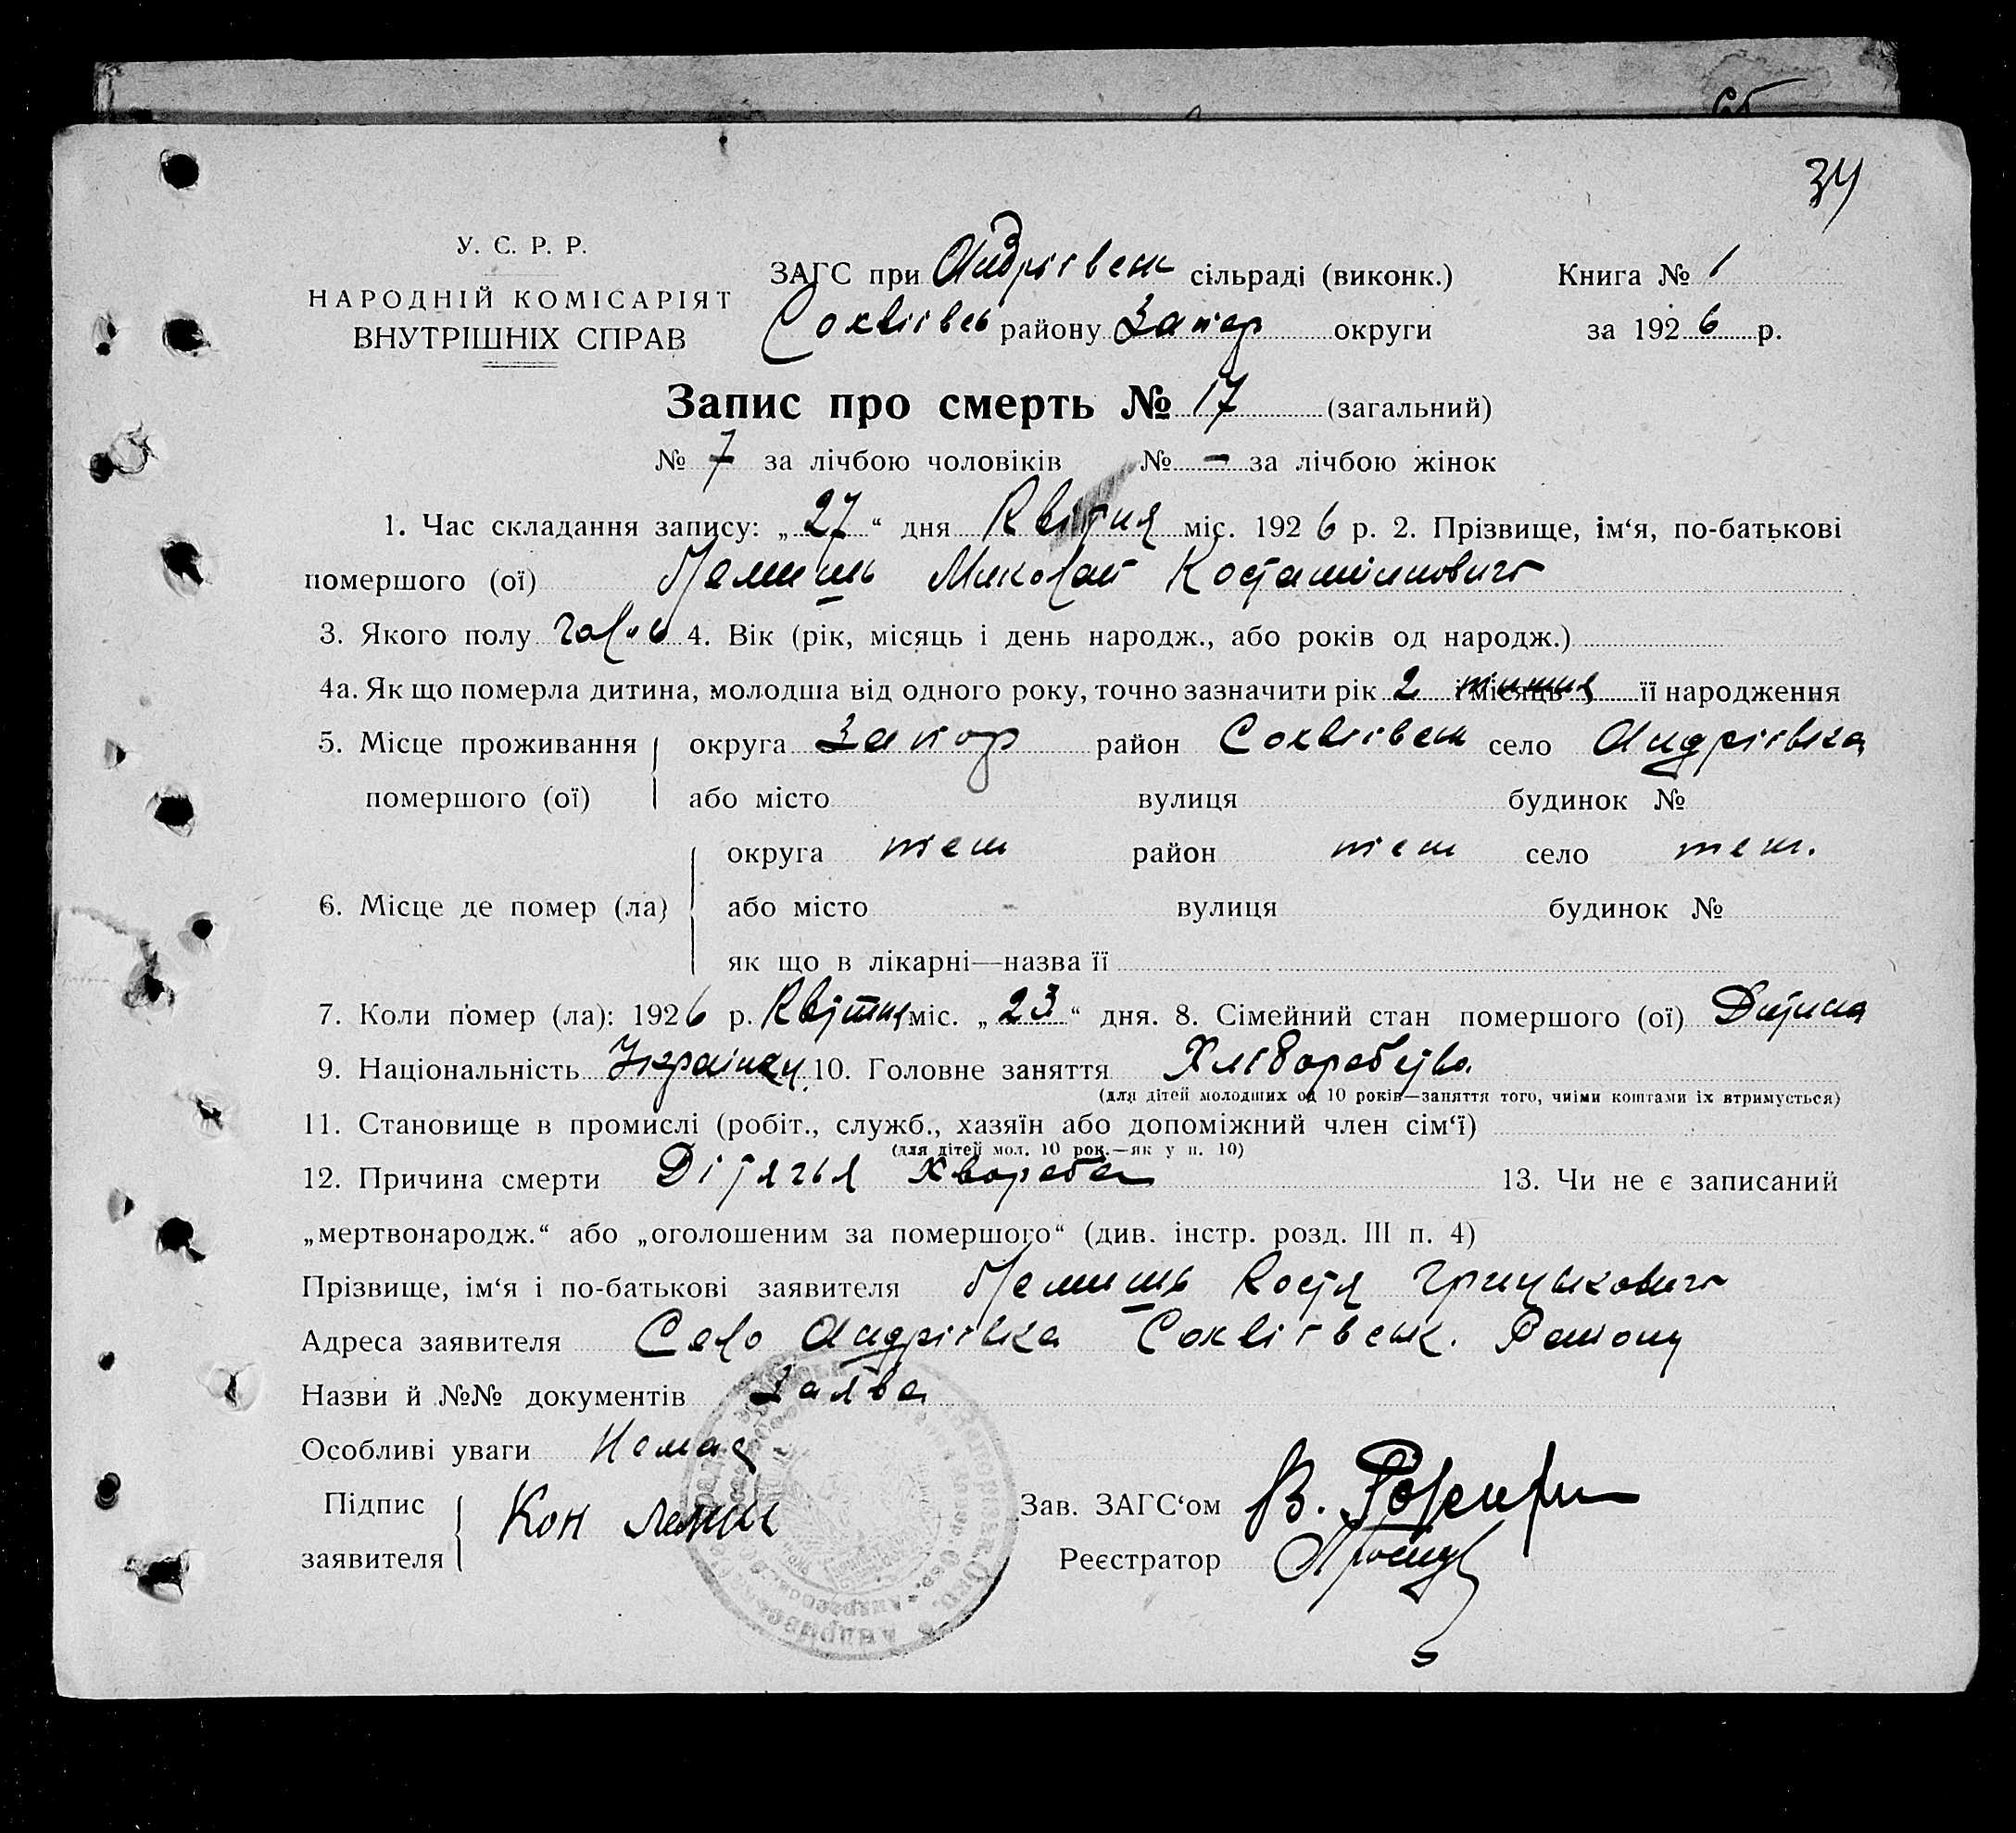 34
У. С. Р. Р.
НАРОДНІЙ КОМІСАРІЯТ
ВНУТРІШНІХ СПРАВ
ЗАГС при Андріівськ сільраді (виконк.) Книга № 1
району Запор округи за 1926 р.
Запис про смерть № 17 (загальний)
№ 7 за лічбою чоловіків № - за лічбою жінок
1. Час складання запису: „27“ дня Квітня міс. 1926 р. 2. Прізвище, ім‘я, по-батькові
помершого (ої) Миколай Костантинович
3. Якого полу 4. Вік (рік, місяць і день народж., або років од народж.)
4а. Як що померла дитина, молодша від одного року, точно зазначити рік 2 і місяць її народження
5. Місце проживання округа Запор район село Андріівка
помершого (ої) або місто вулиця будинок №
округа теж район теж село теж.
6. Місце де помер (ла) або місто - вулиця будинок №
як що в лікарні—назва її
7. Коли помер (ла): 1926 р. Квітня міс. „23“ дня. 8. Сімейний стан помершого (ої) Дитина
9. Національність 10. Головне заняття Хліборобство
(для дітей молодших од 10 років—заняття того, чиїми коштами їх втримується)
11. Становище в промислі (робіт., служб., хазяїн або допоміжний член сім‘ї)
(для дітей мол. 10 рок.—як у п. 10)
12. Причина смерти Дітячья хвороба 13. Чи не є записаний
„мертвонародж.“ або „оголошеним за помершого“ (див. інстр. розд. III п. 4)
Прізвище, ім‘я і по-батькові заявителя Костя Грицькович
Адреса заявителя Село Андріівка Району
Назви й №№ документів Заява
Особливі уваги Немає
Підпис Кон Зав. ЗАГС‘ом В.
заявителя Реєстратор